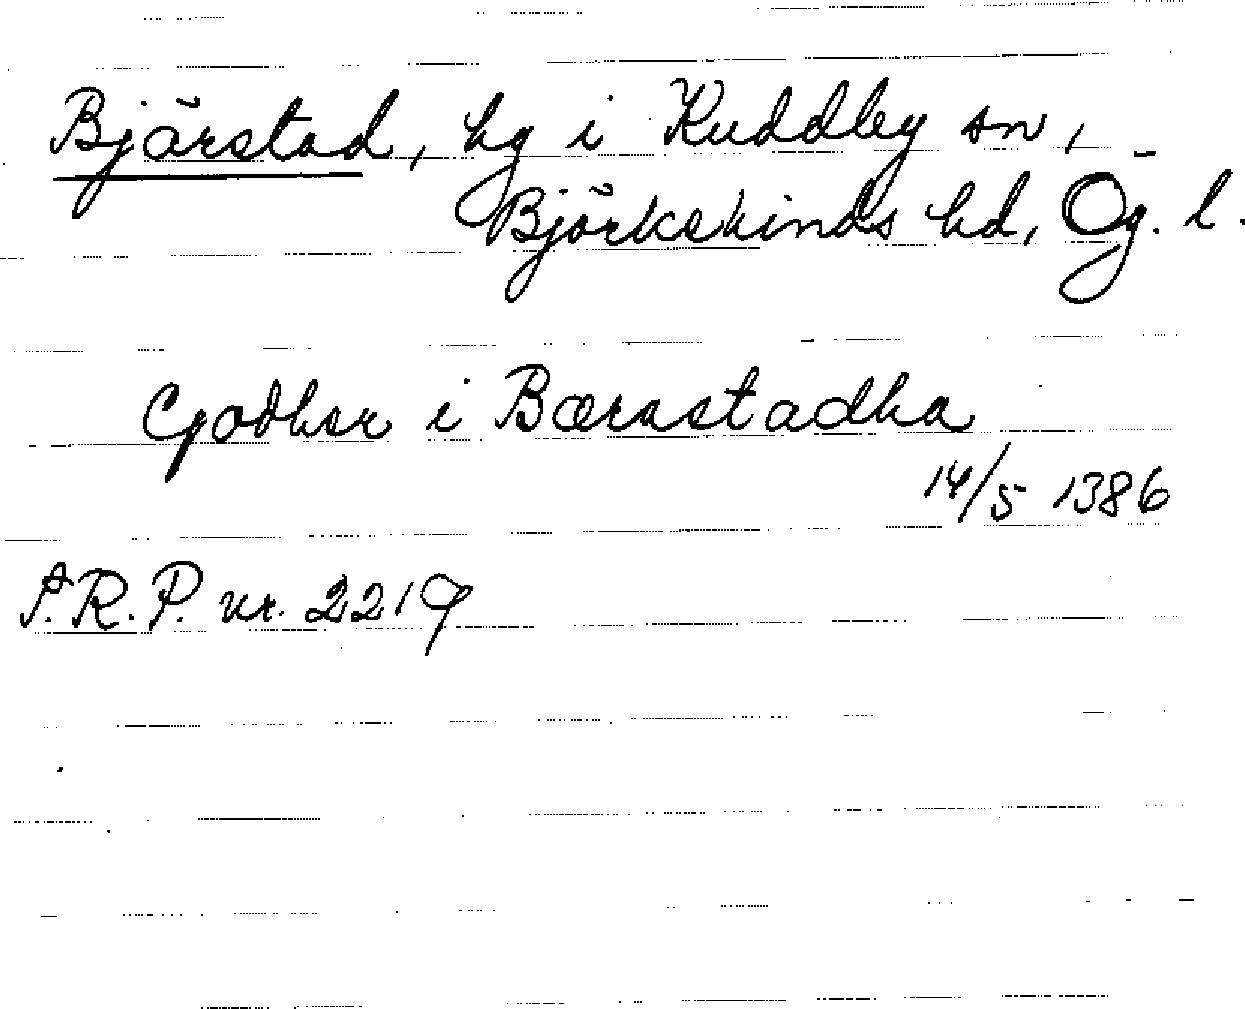 Bjärstad, by i Kuddby sn,
Björkekinds hd, Ög. l.
i Bærastadha
14/5 1386
S.R.P. nr. 2219